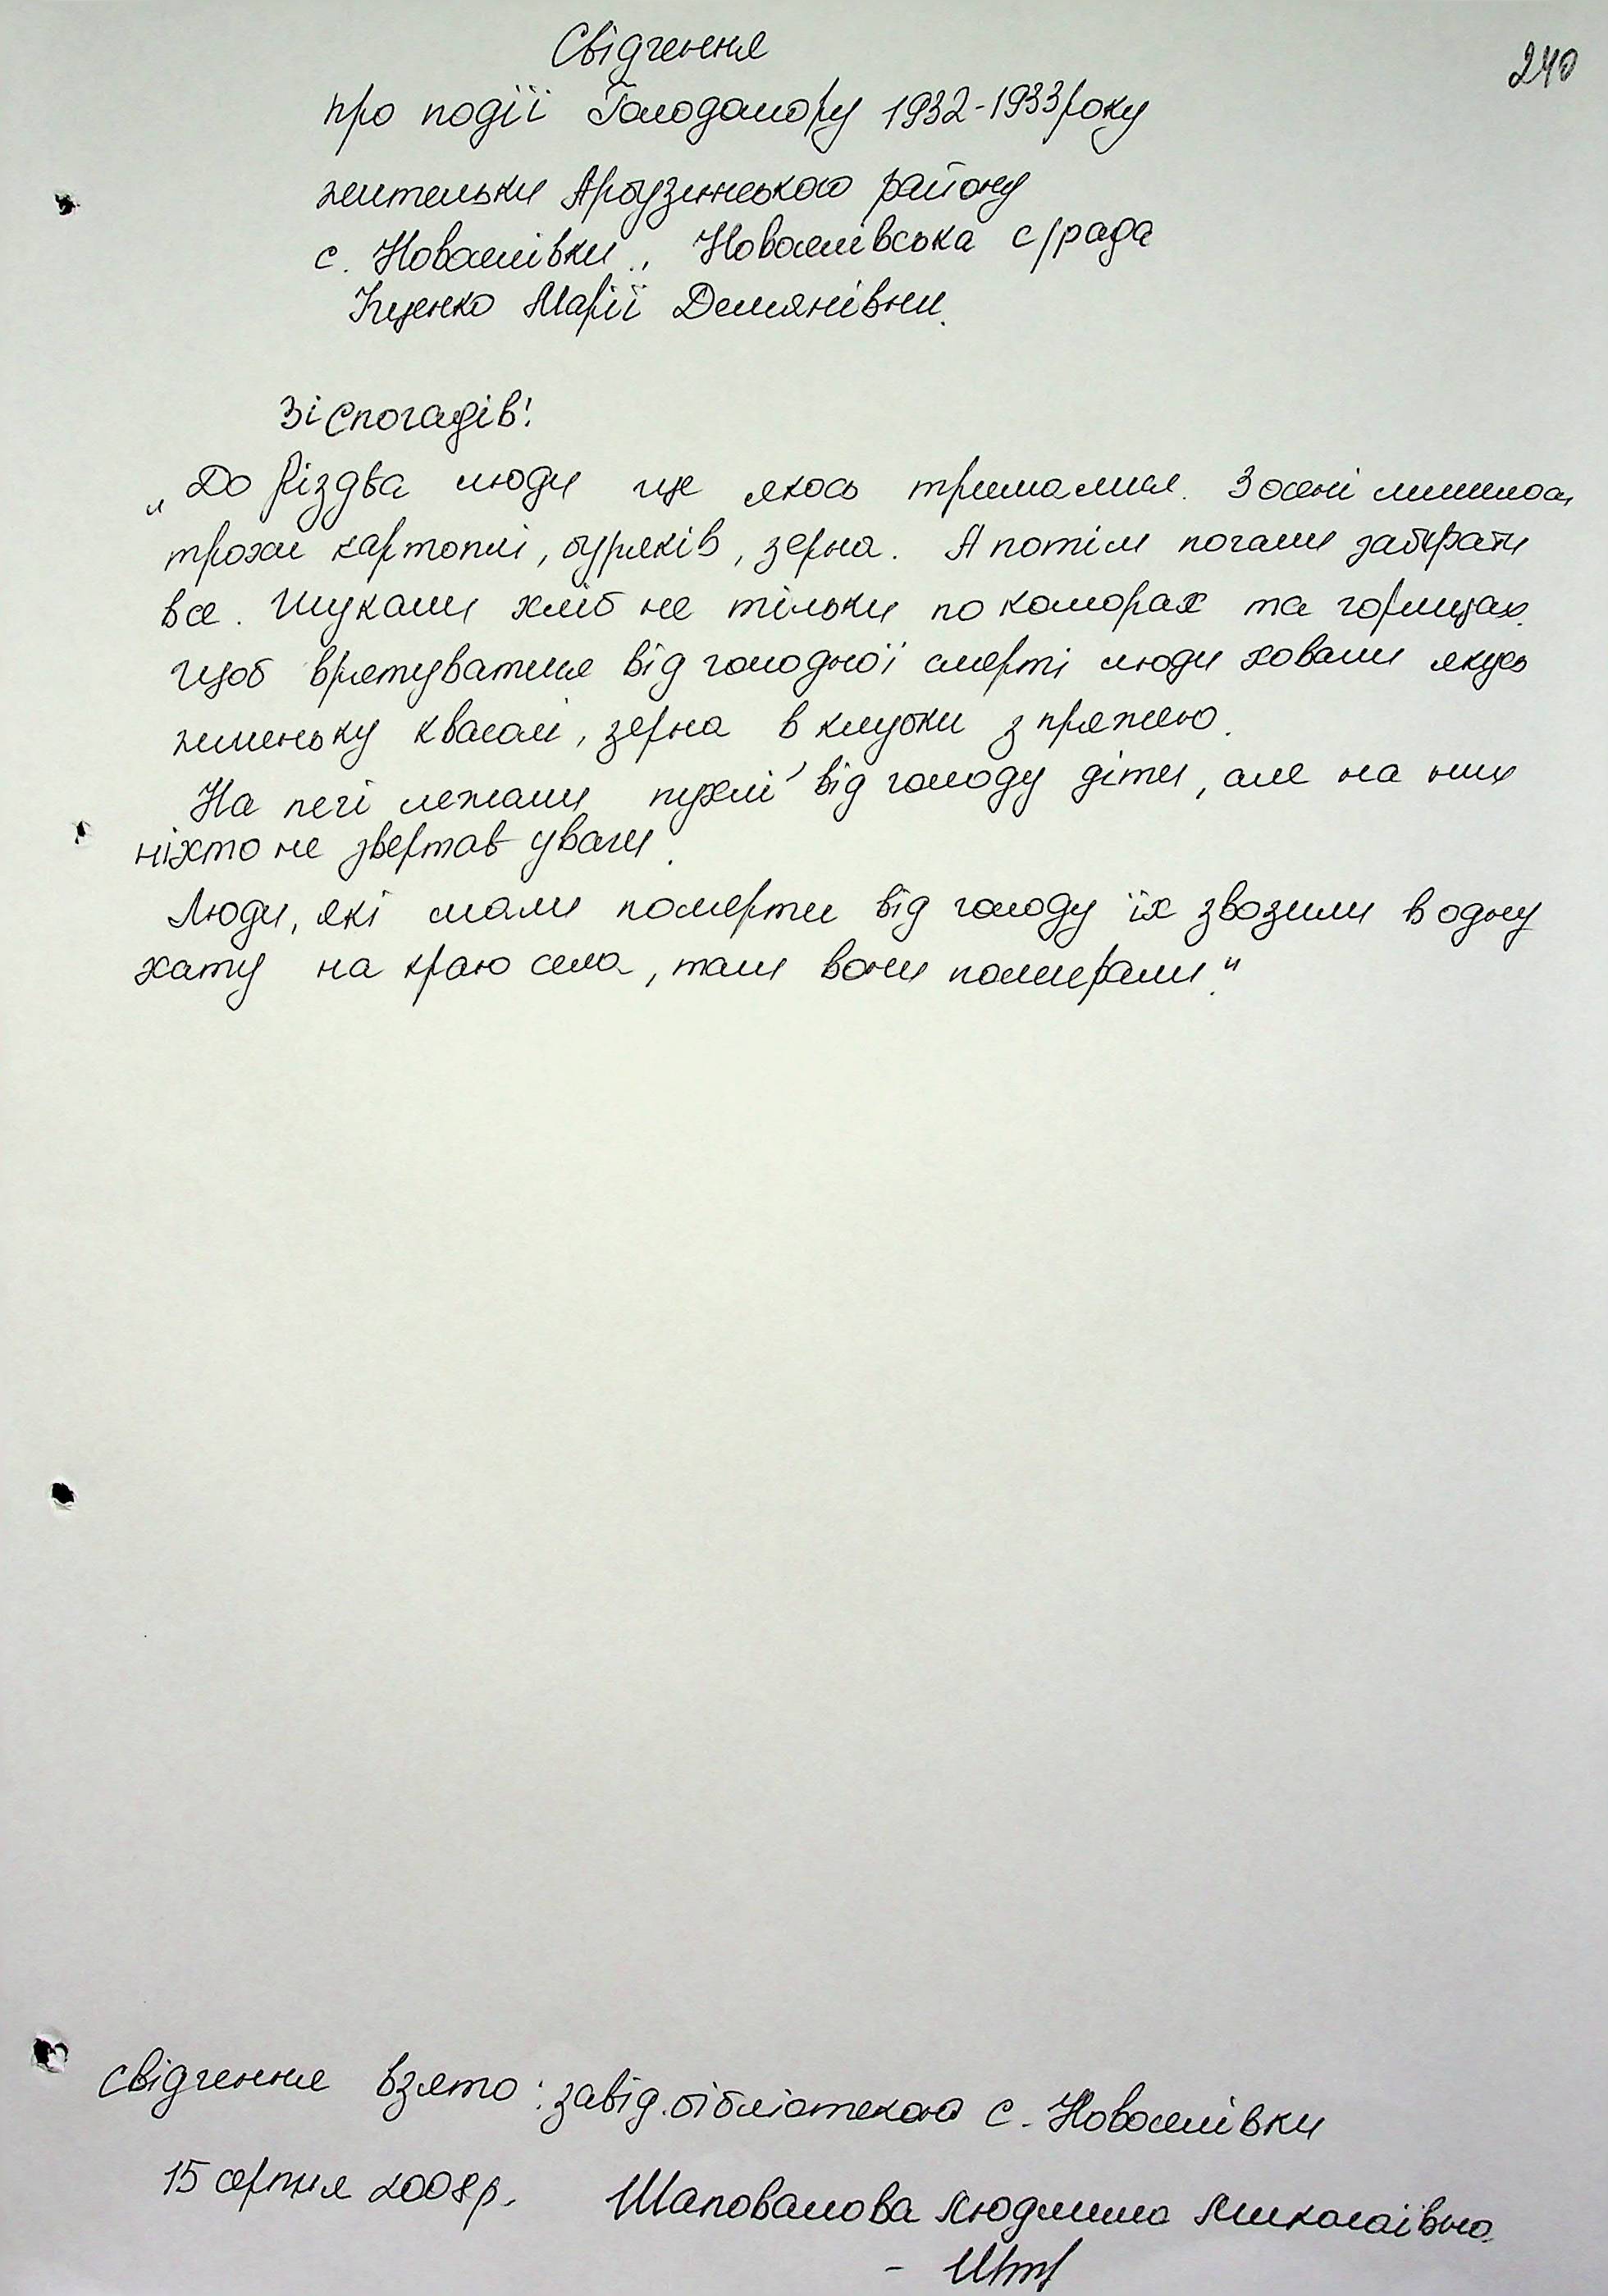 240
Свідчення
про події Голодомору 1932-1933 року
жительки Арбузинського району
с. Новоселівки, Новоселівська с/рада
Іщенко Марії Демянівни.
Зі спогадів!
„До Різдва люди ще якось трималися. З осені лишилось
трохи картоплі, буряків, зерна. А потім почали забирати
все. Шукали хліб не тільки по коморах та горищах.
Щоб врятуватися від голодної смерті люди ховали якусь
жменьку квасолі, зерна в клубки з пряжею.
На печі лежали пухлі від голоду діти, але на них
ніхто не звертав уваги.
Люди, які мали померти від голоду їх звозили в одну
хату на краю села, там вони помирали."
Свідчення взято: завід. бібліотекою с. Новоселівки
15 серпня 2008р. Шаповалова Людмила Миколаївна.